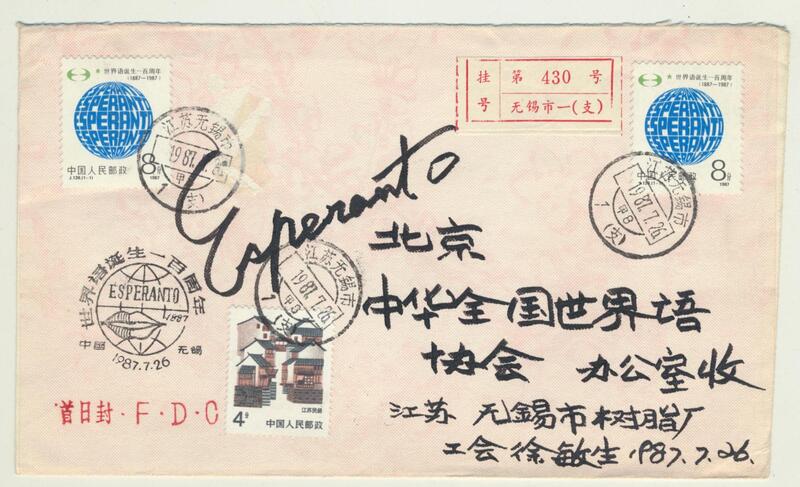 ★ 世界语诞生一百周年
(1887-1987)
ESPERANTO
ESPERANTO
ESPERANTO
中国人民邮政
8分
J.139.(1-1)
1987
挂号
第 430 号
无锡市一(支)
★ 世界语诞生一百周年
(1887-1987)
ESPERANTO
ESPERANTO
ESPERANTO
中国人民邮政
8分
J.139.(1-1)
1987
江苏无锡市
1987.7.26
甲8
1(支)
江苏无锡市
1987.7.26
甲8
1(支)
Esperanto
北京
中华全国世界语
协会 办公室收
江苏 无锡市树脂厂
工会 徐敏生 1987.7.26.
江苏无锡市
1987.7.26
甲8
1(支)
世界语诞生一百周年
ESPERANTO
1887
中国 无锡
1987.7.26
首日封·F·D·C
4分
江苏民居
中国人民邮政